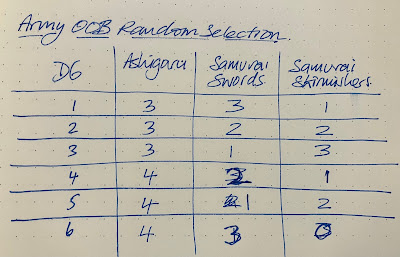 Army OOB Random Selection.
D6 Ashigaru Samurai Samurai
Swords Skirmishers.
1 3 3 1
2 3 2 2
3 3 1 3
4 4 2 1
5 4 1 2
6 4 3 0